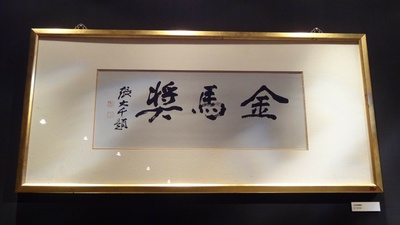 金馬獎
張大千題